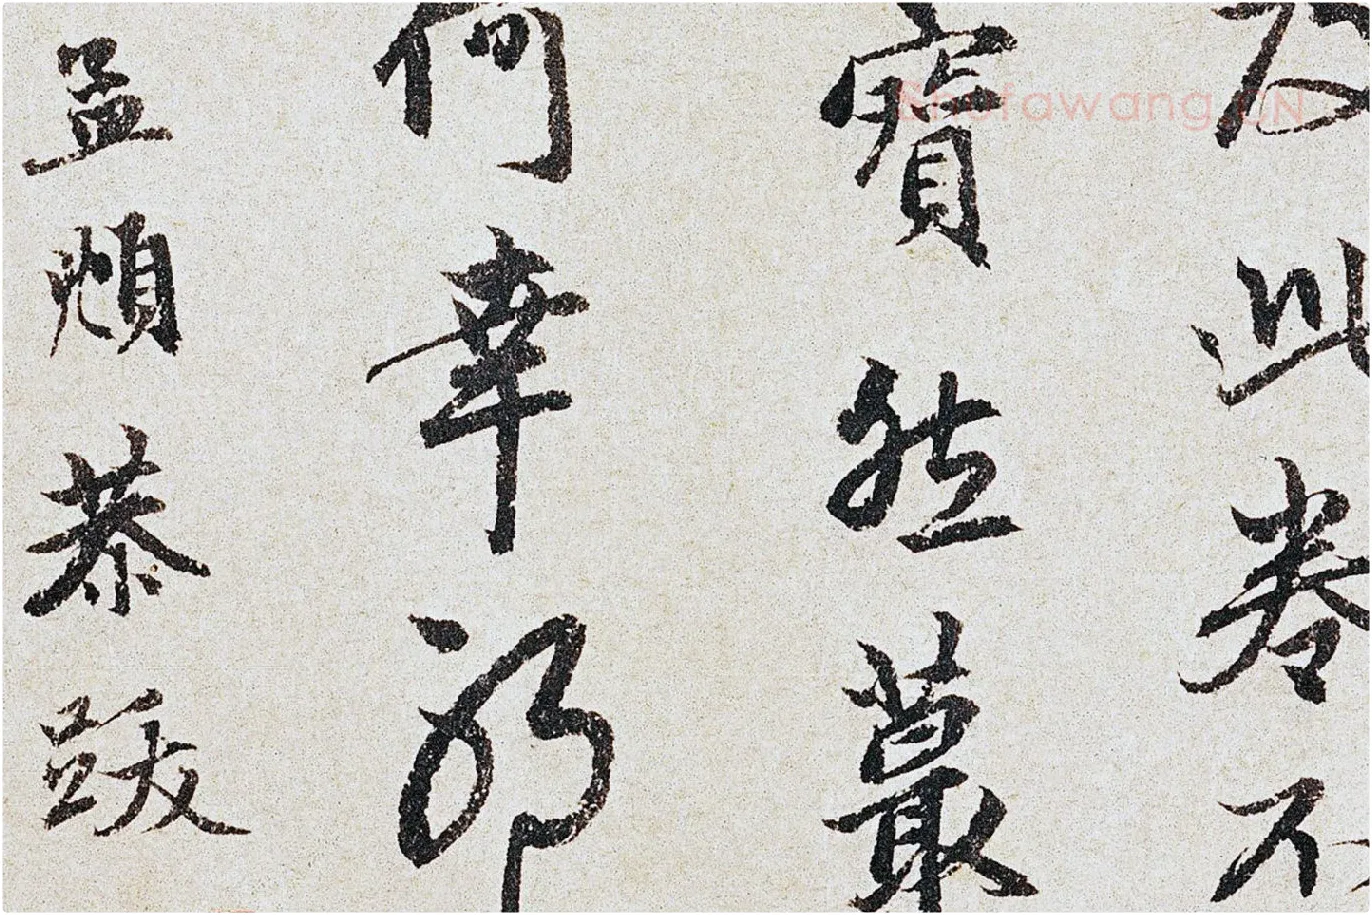 此卷不
然蕞
何幸耶
孟頫恭跋
Shufawang.CN